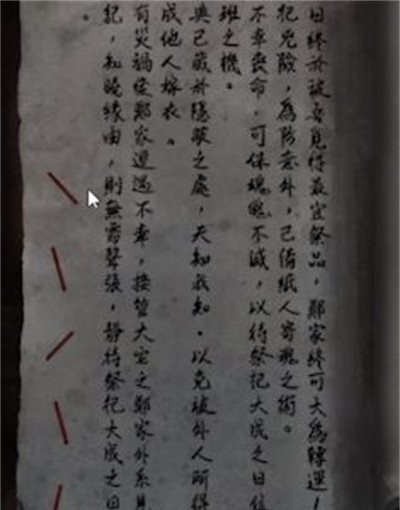 日終於被吾覓得最宜祭品，鄭家終可大為轉運！
祀兇險，為防意外，已備紙人寄魂之術。
不幸喪命，可保魂魄不滅，以待祭祀大成之日位
班之機。
已藏於隱蔽之處，天知我知。以免被外人所得
成他人嫁衣。
有災禍使鄭家遭遇不幸，接管大宅之鄭家外系見
記，知曉緣由，則無需聲張，靜待祭祀大成之日
。